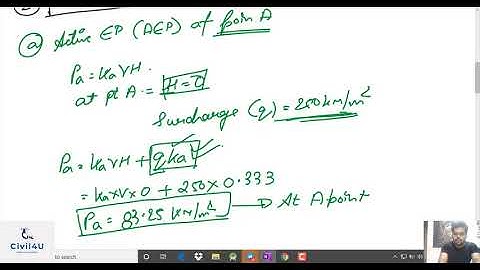 (a) Active EP (AEP) at point A
Pa = kaγH
at pt A = H = 0
Surcharge (q) = 250 kN/m²
Pa = kaγH + qka
= ka×γ×0 + 250×0.333
Pa = 83.25 kN/m² → At A point
Civil4U
to search